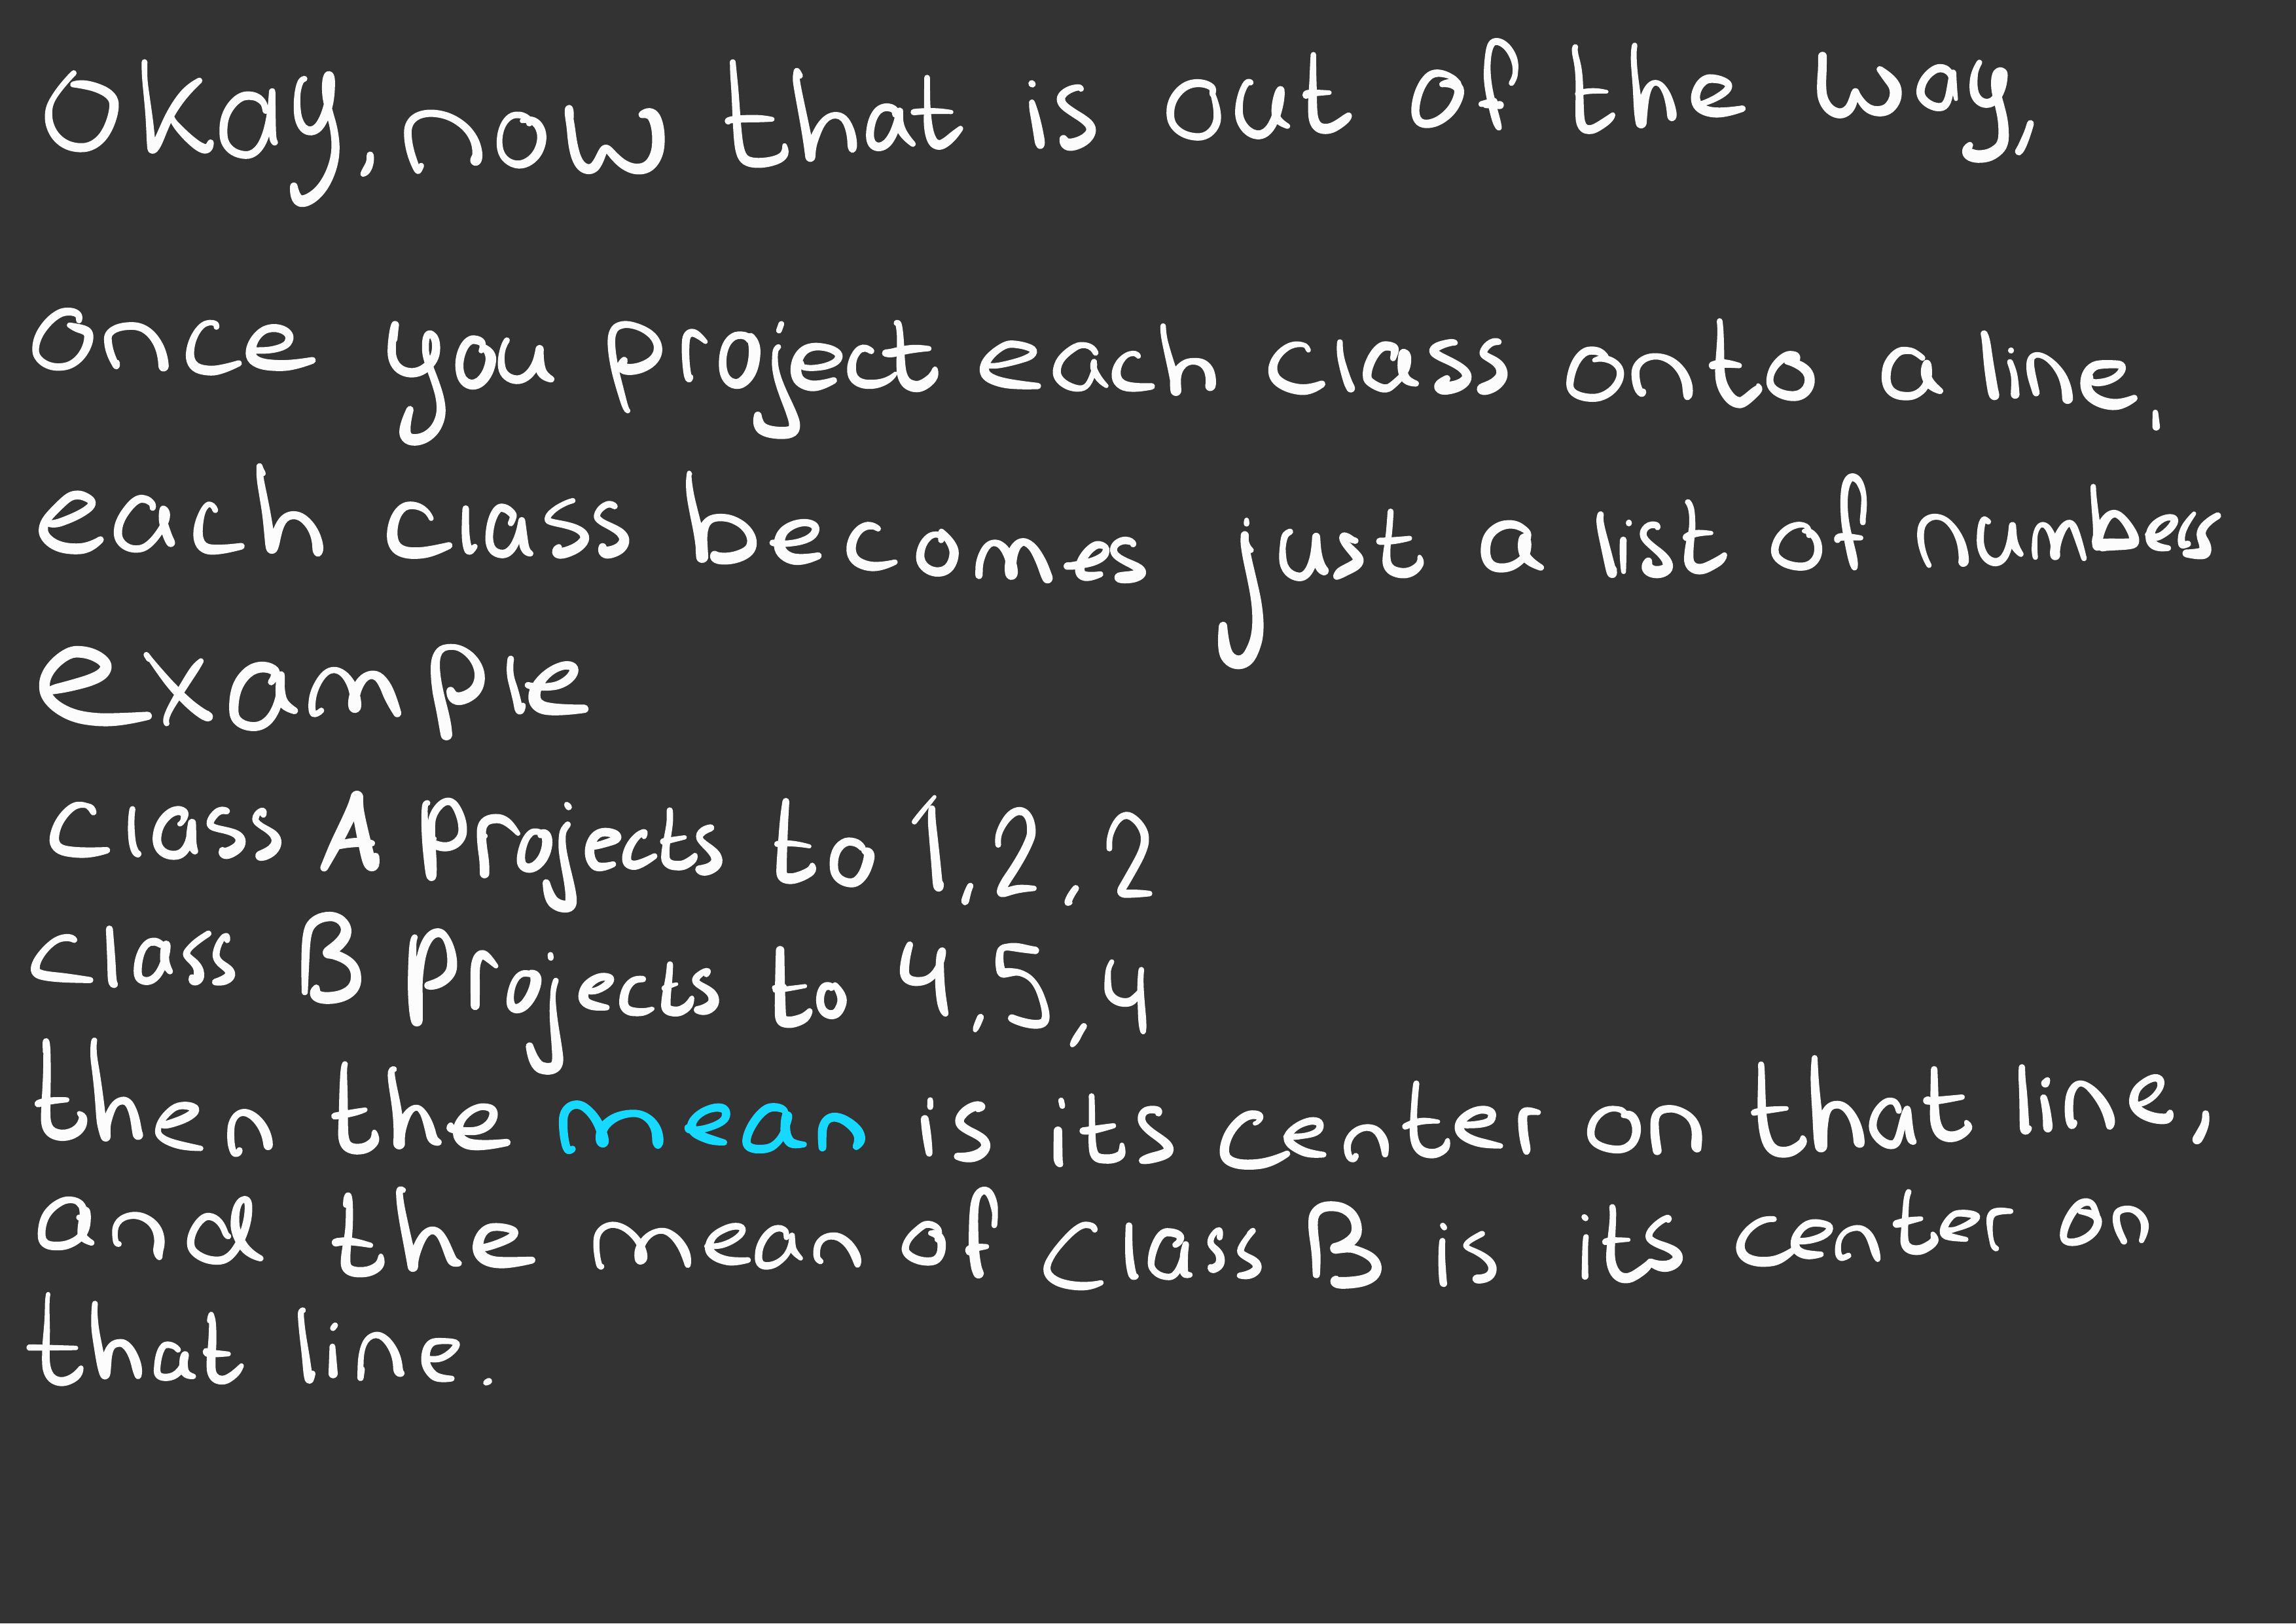 Okay, now that is out of the way,
Once you project each class onto a line,
each class becomes just a list of numbes
Example
Class A Projects to 1, 2, 2
Class B Projects to 4, 5, 4
then the mean is its center on that line,
and the mean of class B is its center on
that line.